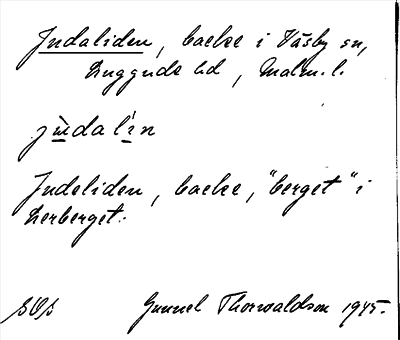 Judaliden, backe i Väsby sn,
Luggude hd, Malm. l.
jùdalín
Judeliden, backe, "berget" i
Lerberget.
SOS Gunnel Thorwaldson 1945.